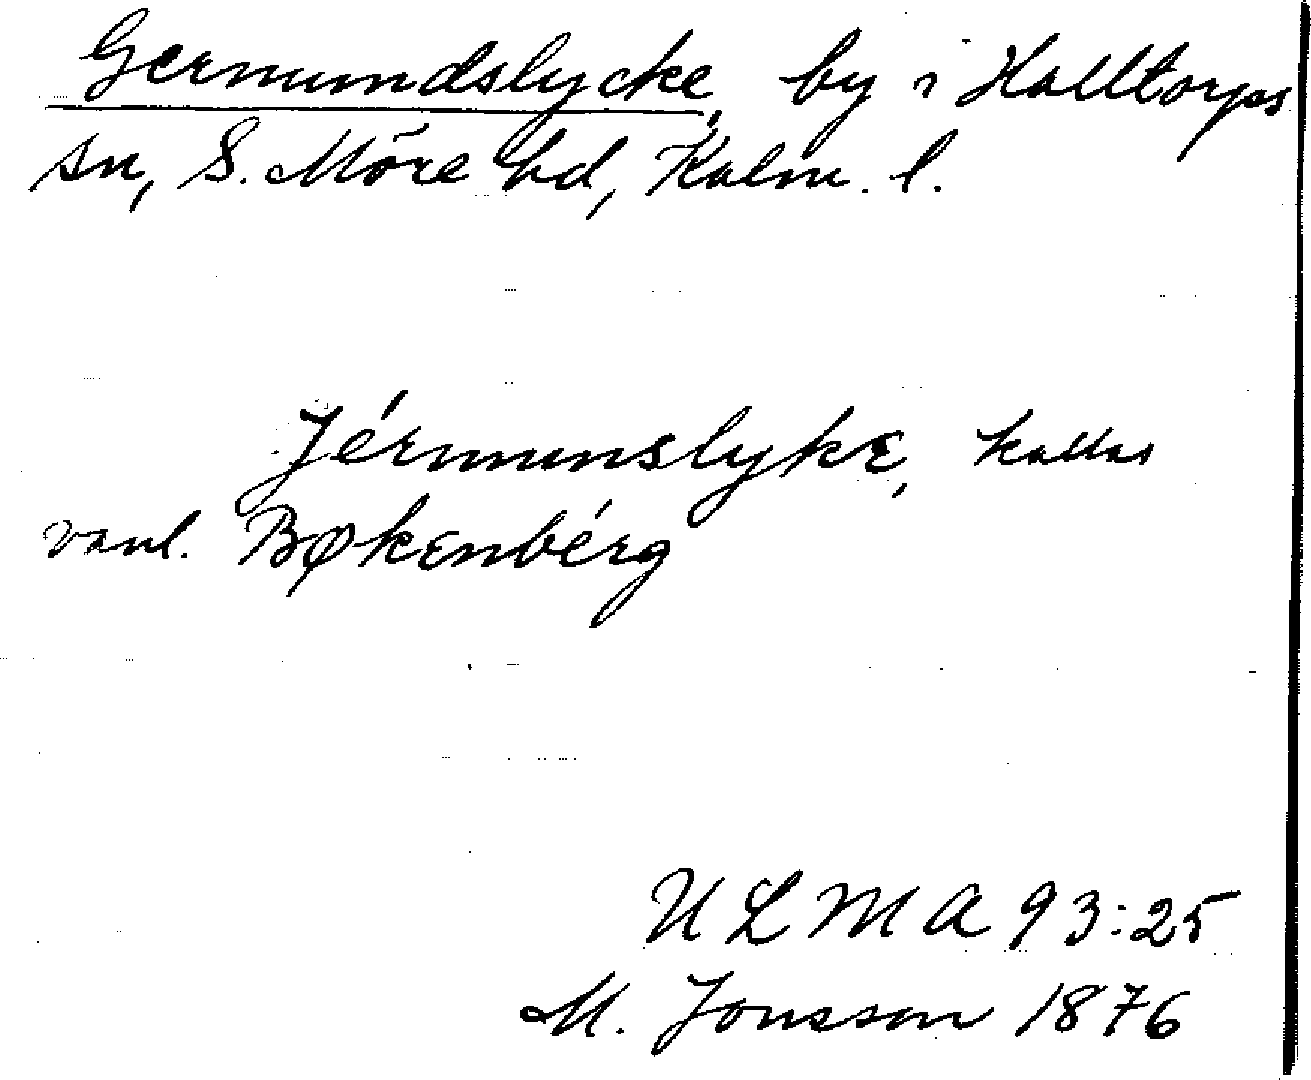 Germundslycke, by i Halltorps
sn, S. Möre hd, Kalm. l.
Jérmunslykɛ, kallas
vanl. Bøkɛnbérg
ULMA 93:25
M. Jonsson 1876